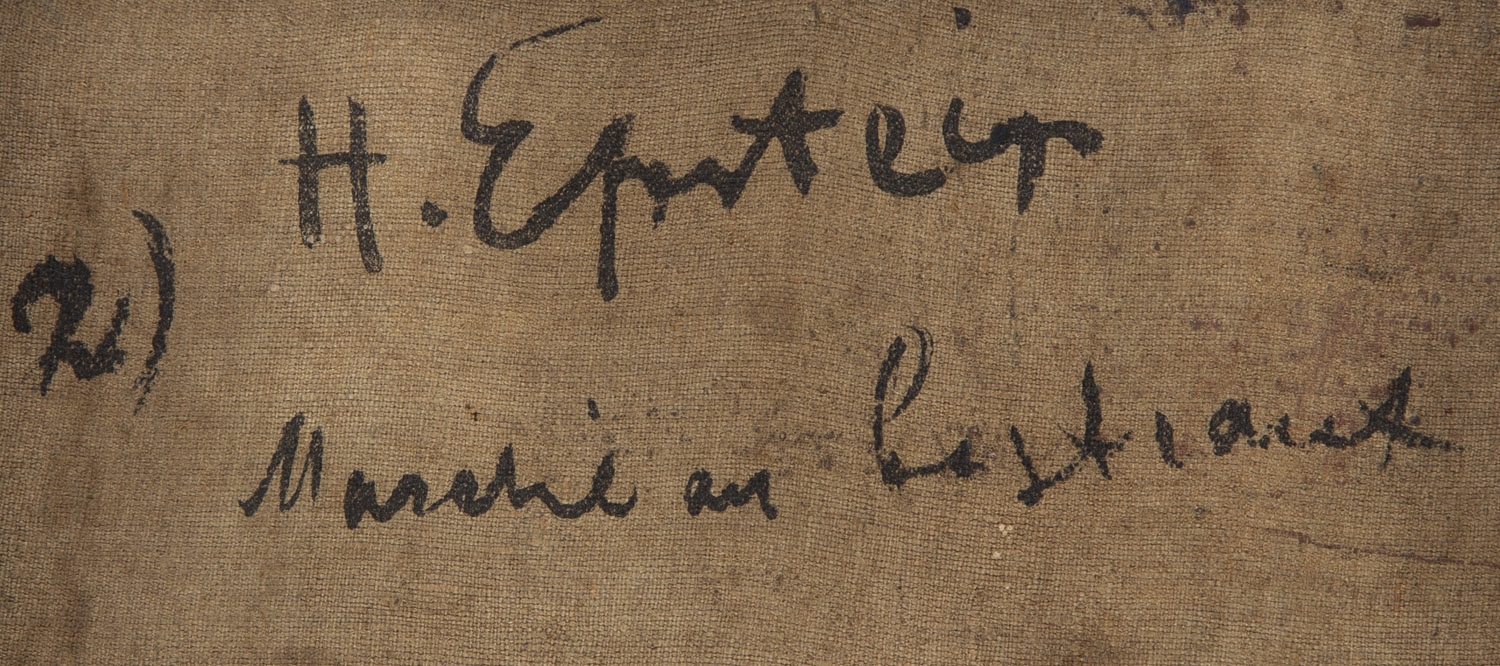 H. Epstein
2)
Marché au bestiaux